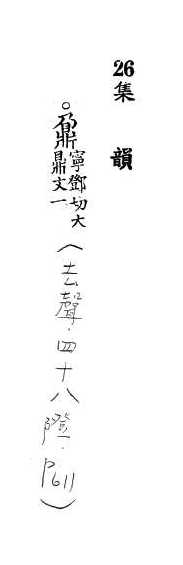 26 集 韻
○鼐寧鄧切大鼎文一(去聲.四十八隥.P611)